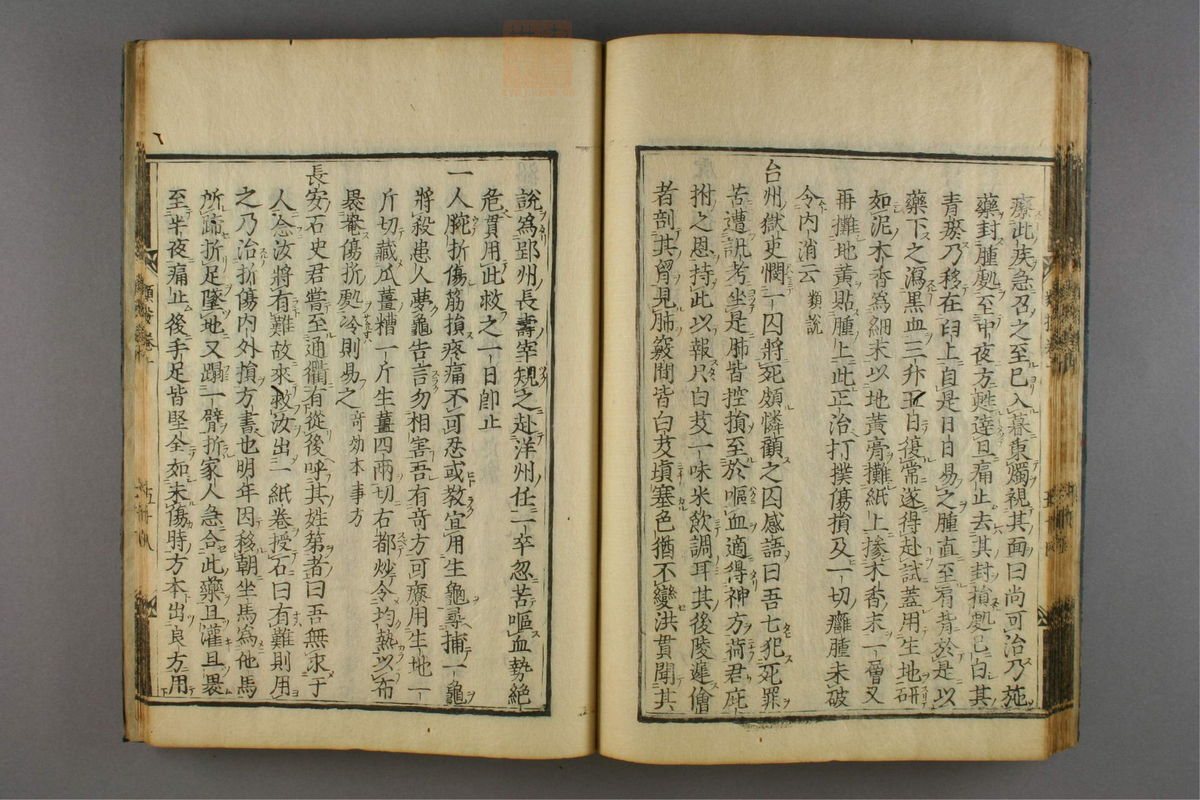 療此疾急召之至已入暮秉燭視其面曰尚可治乃施
藥封腫處至中夜方甦達旦痛止去其封損處已白其
青瘀乃移在臼上自是日日易之腫直至肩背於是以
藥下之瀉黑血三升五日復常遂得赴試蓋用生地研
如泥木香為細末以地黃膏攤紙上掺木香末一層又
再攤地黃貼腫上此正治打撲傷損及一切癰腫未破
令內消云 類說
台州獄吏憫一囚將死頗憐顧之囚感語曰吾七犯死罪
苦遭訊考坐是肺皆控損至於嘔血適得神方荷君庇
拊之恩持此以報只白芨一味米飲調耳其後陵遲儈
者剖其胷見肺竅間皆白芨填塞色猶不變洪貫聞其
說為郢州長壽宰規之赴洋州任一卒忽苦嘔血勢絕
危貫用此救之一日卽止
一人腕折傷筋損疼痛不可忍或教宜用生龜尋捕一龜
將殺患人夢龜告言勿相害吾有奇方可療用生地一
斤切藏瓜薑糟一斤生薑四兩切右都炒令均熱以布
裹罨傷折處冷則易之 奇効本事方
長安石史君嘗至通衢有從後呼其姓第者曰吾無求于
人念汝將有難故來救汝出一紙卷授石曰有難則用
之乃治折傷內外損方書也明年因移朝坐馬為他馬
所踶折足墜地又蹋一臂折家人急合此藥且灌且裹
至半夜痛止後手足皆堅全如未傷時方本出良方用